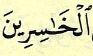 ٱلْخَـٰسِرِينَ